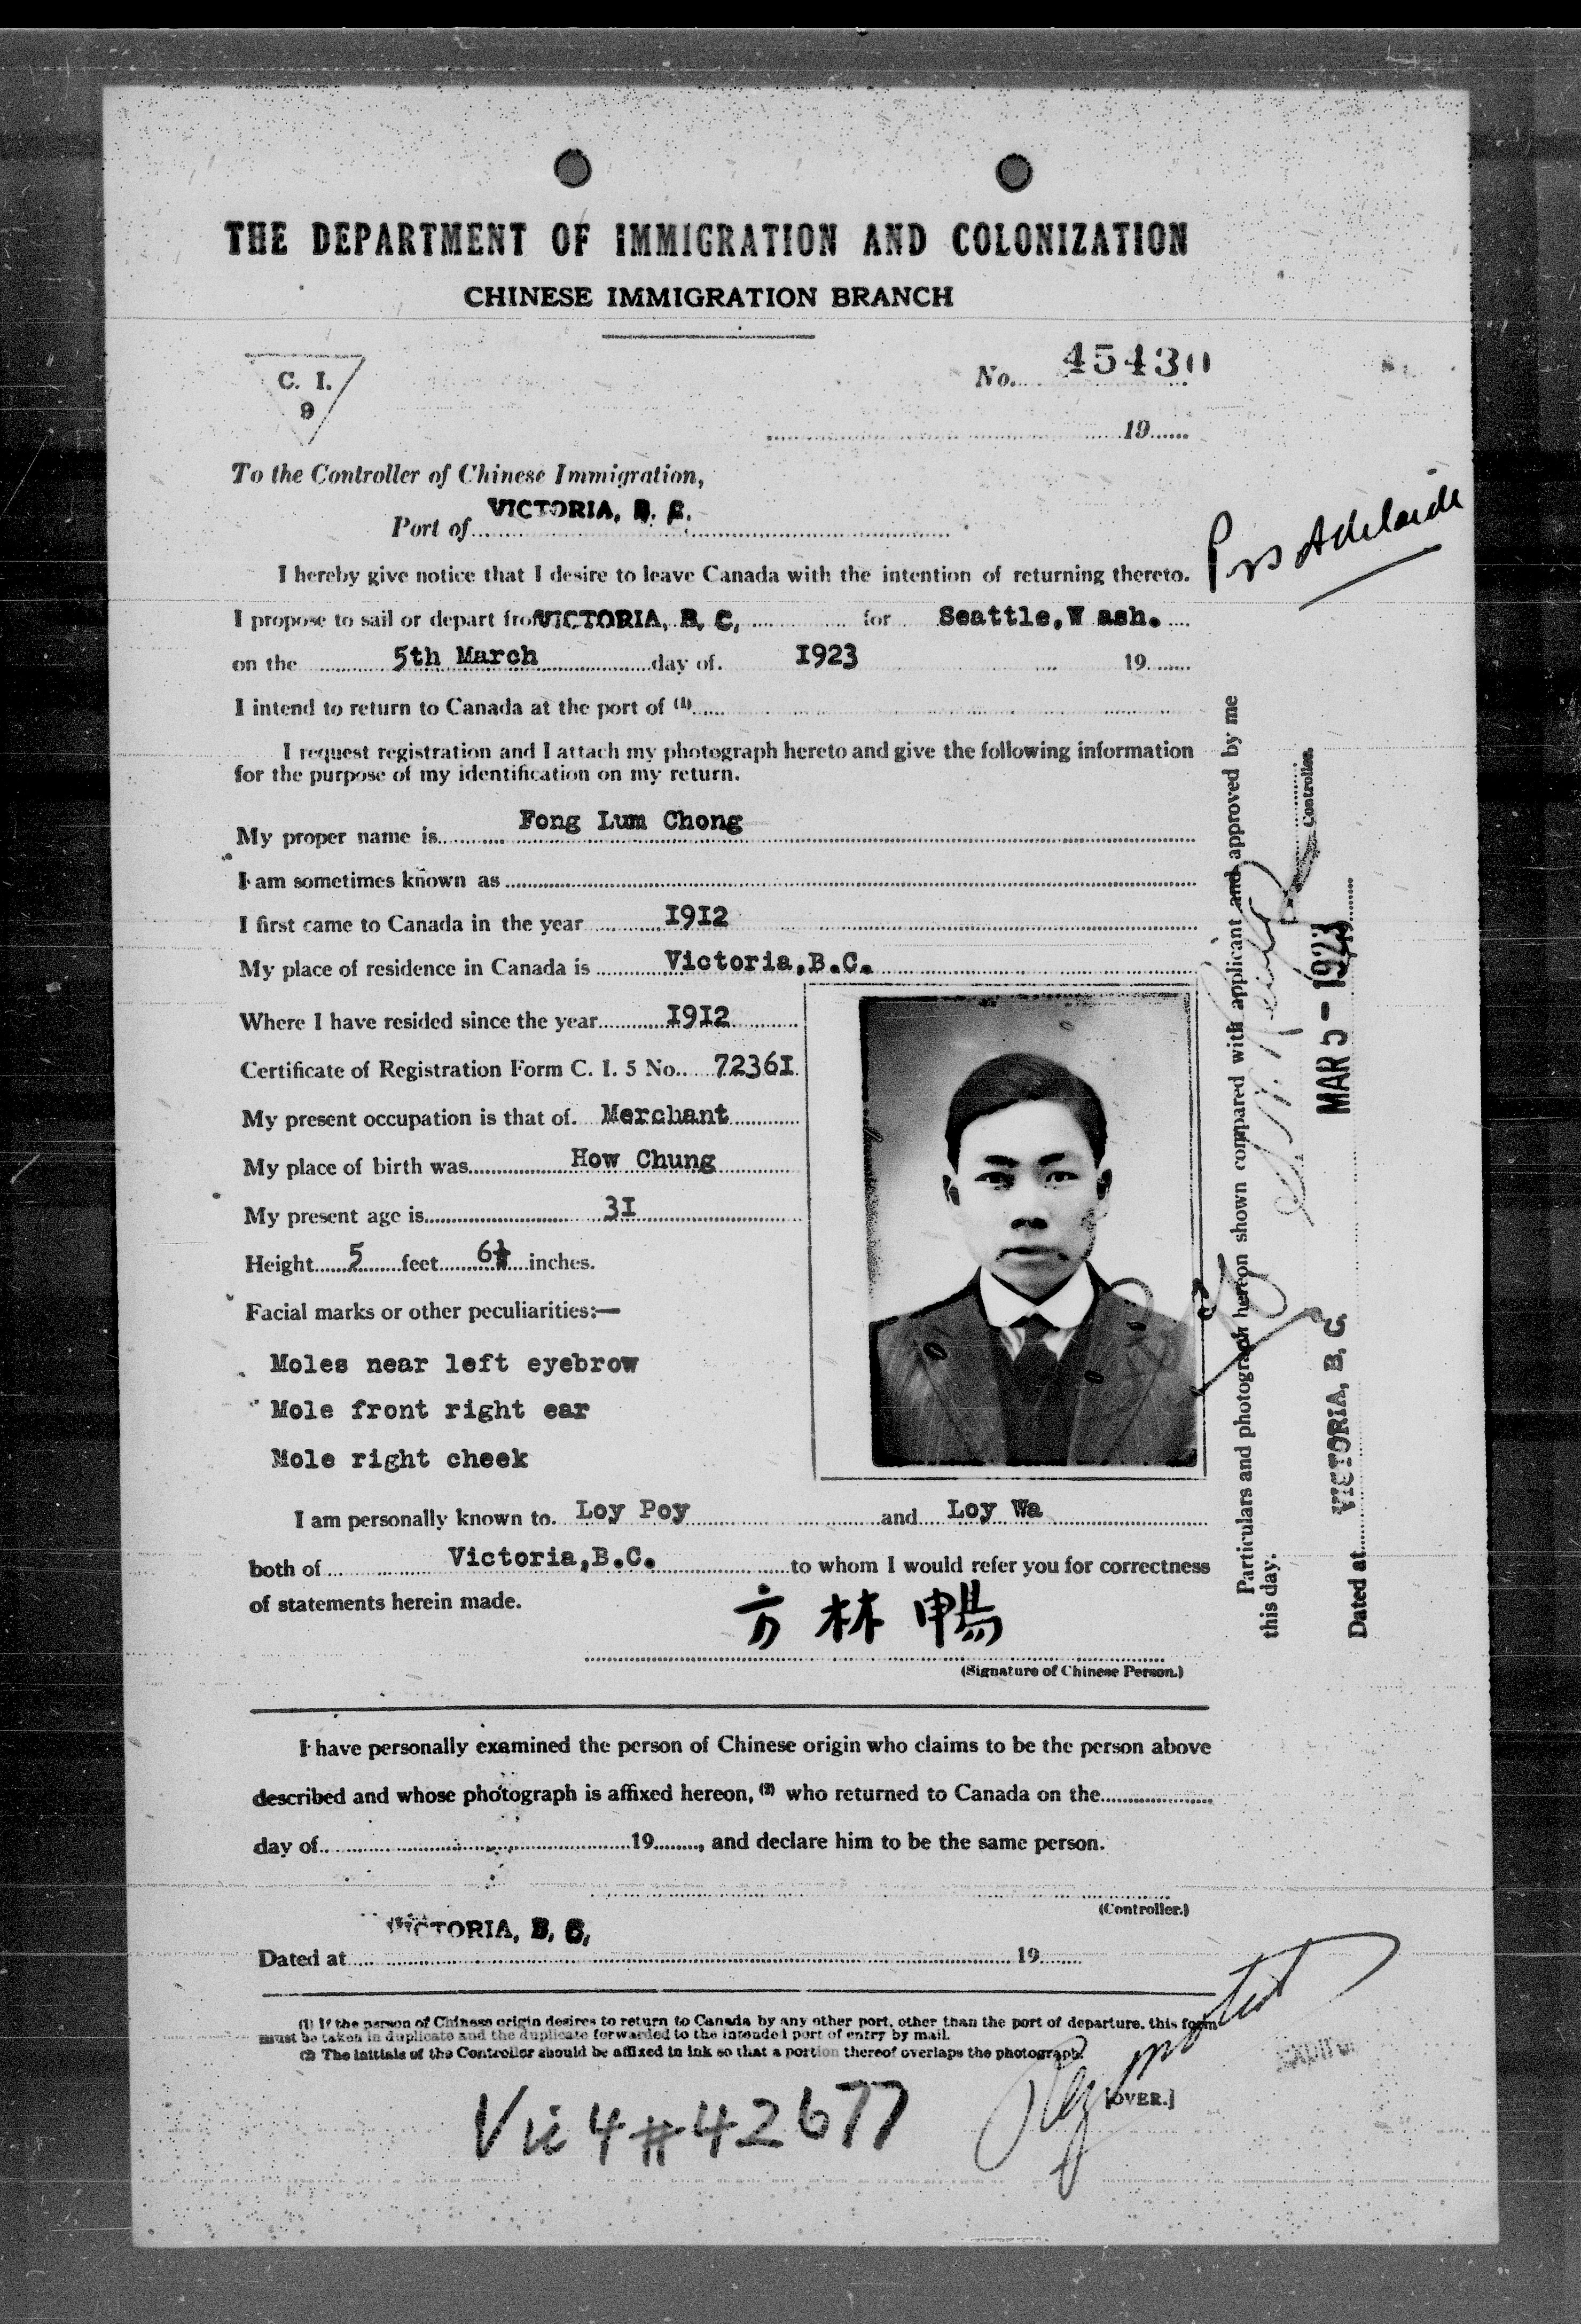 THE DEPARTMENT OF IMMIGRATION AND COLONIZATION
CHINESE IMMIGRATION BRANCH
C. I.
9
No. 45430
19
To the Controller of Chinese Immigration,
Port of VICTORIA, B. C.
I hereby give notice that I desire to leave Canada with the intention of returning thereto.
Adelaide
I propose to sail or depart from VICTORIA, B. C. for Seattle, W ash.
on the 5th March day of 1923 19
I intend to return to Canada at the port of (1)
I request registration and I attach my photograph hereto and give the following information
for the purpose of my identification on my return.
My proper name is Fong Lum Chong
I am sometimes known as
I first came to Canada in the year 1912
My place of residence in Canada is Victoria,B.C.
Where I have resided since the year 1912
Certificate of Registration Form C. I. 5 No. 72361
My present occupation is that of Merchant
My place of birth was How Chung
My present age is 31
Height 5 feet 6½ inches.
Facial marks or other peculiarities:—
Moles near left eyebrow
Mole front right ear
Mole right cheek
I am personally known to Loy Poy and Loy Wa
both of Victoria,B.C. to whom I would refer you for correctness
of statements herein made.
方林
(Signature of Chinese Person.)
Particulars and photograph hereon shown compared with applicant and approved by me
this day.
Controller.
Dated at VICTORIA, B. C. MAR 5 - 1923 19
I have personally examined the person of Chinese origin who claims to be the person above
described and whose photograph is affixed hereon, (2) who returned to Canada on the
day of 19, and declare him to be the same person.
(Controller.)
Dated at VICTORIA, B. C. 19
(1) If the person of Chinese origin desires to return to Canada by any other port, other than the port of departure, this form
must be taken in duplicate and the duplicate forwarded to the intended port of entry by mail.
(2) The initials of the Controller should be affixed in ink so that a portion thereof overlaps the photograph.
[OVER.]
Vic 4 # 42677